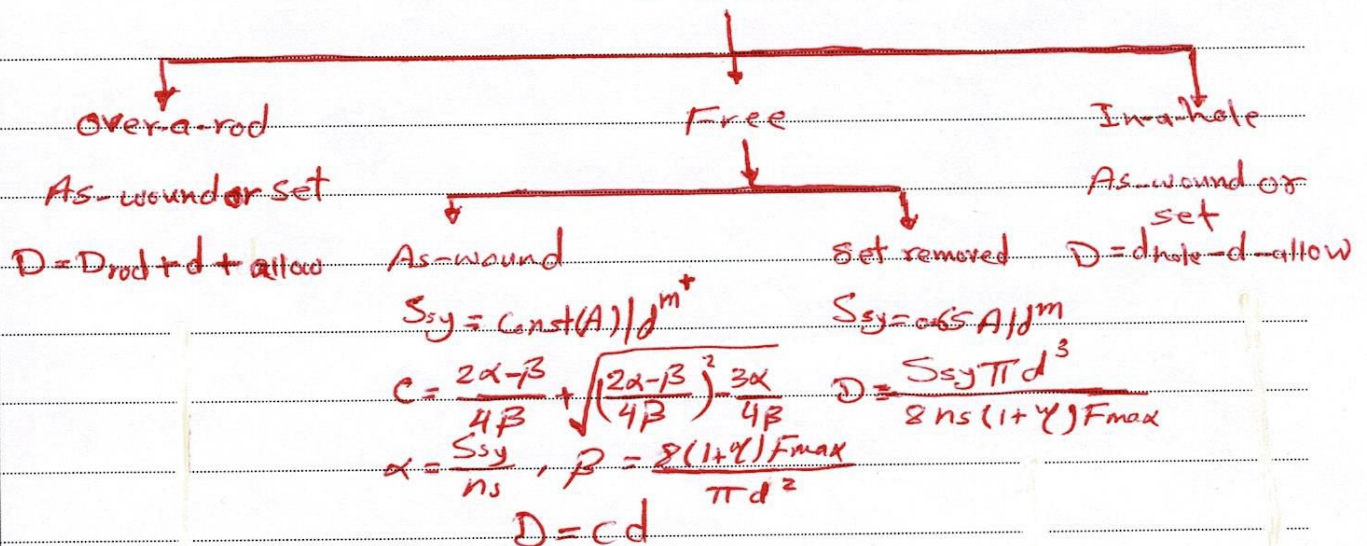 over-a-rod
As-wound or set
D = Drod + d + allow
Free
As-wound
Ssy = Const(A)/d^m+
C = (2α-β)/4β + √((2α-β)/4β)² - 3α/4β
α = Ssy/ns , β = 8(1+ξ)Fmax/πd²
D = cd
Set removed
Ssy = 0.65 A/d^m
D = Ssy π d³ / 8 ns (1+ξ) Fmax
In-a-hole
As-wound or
set
D = dhole - d - allow